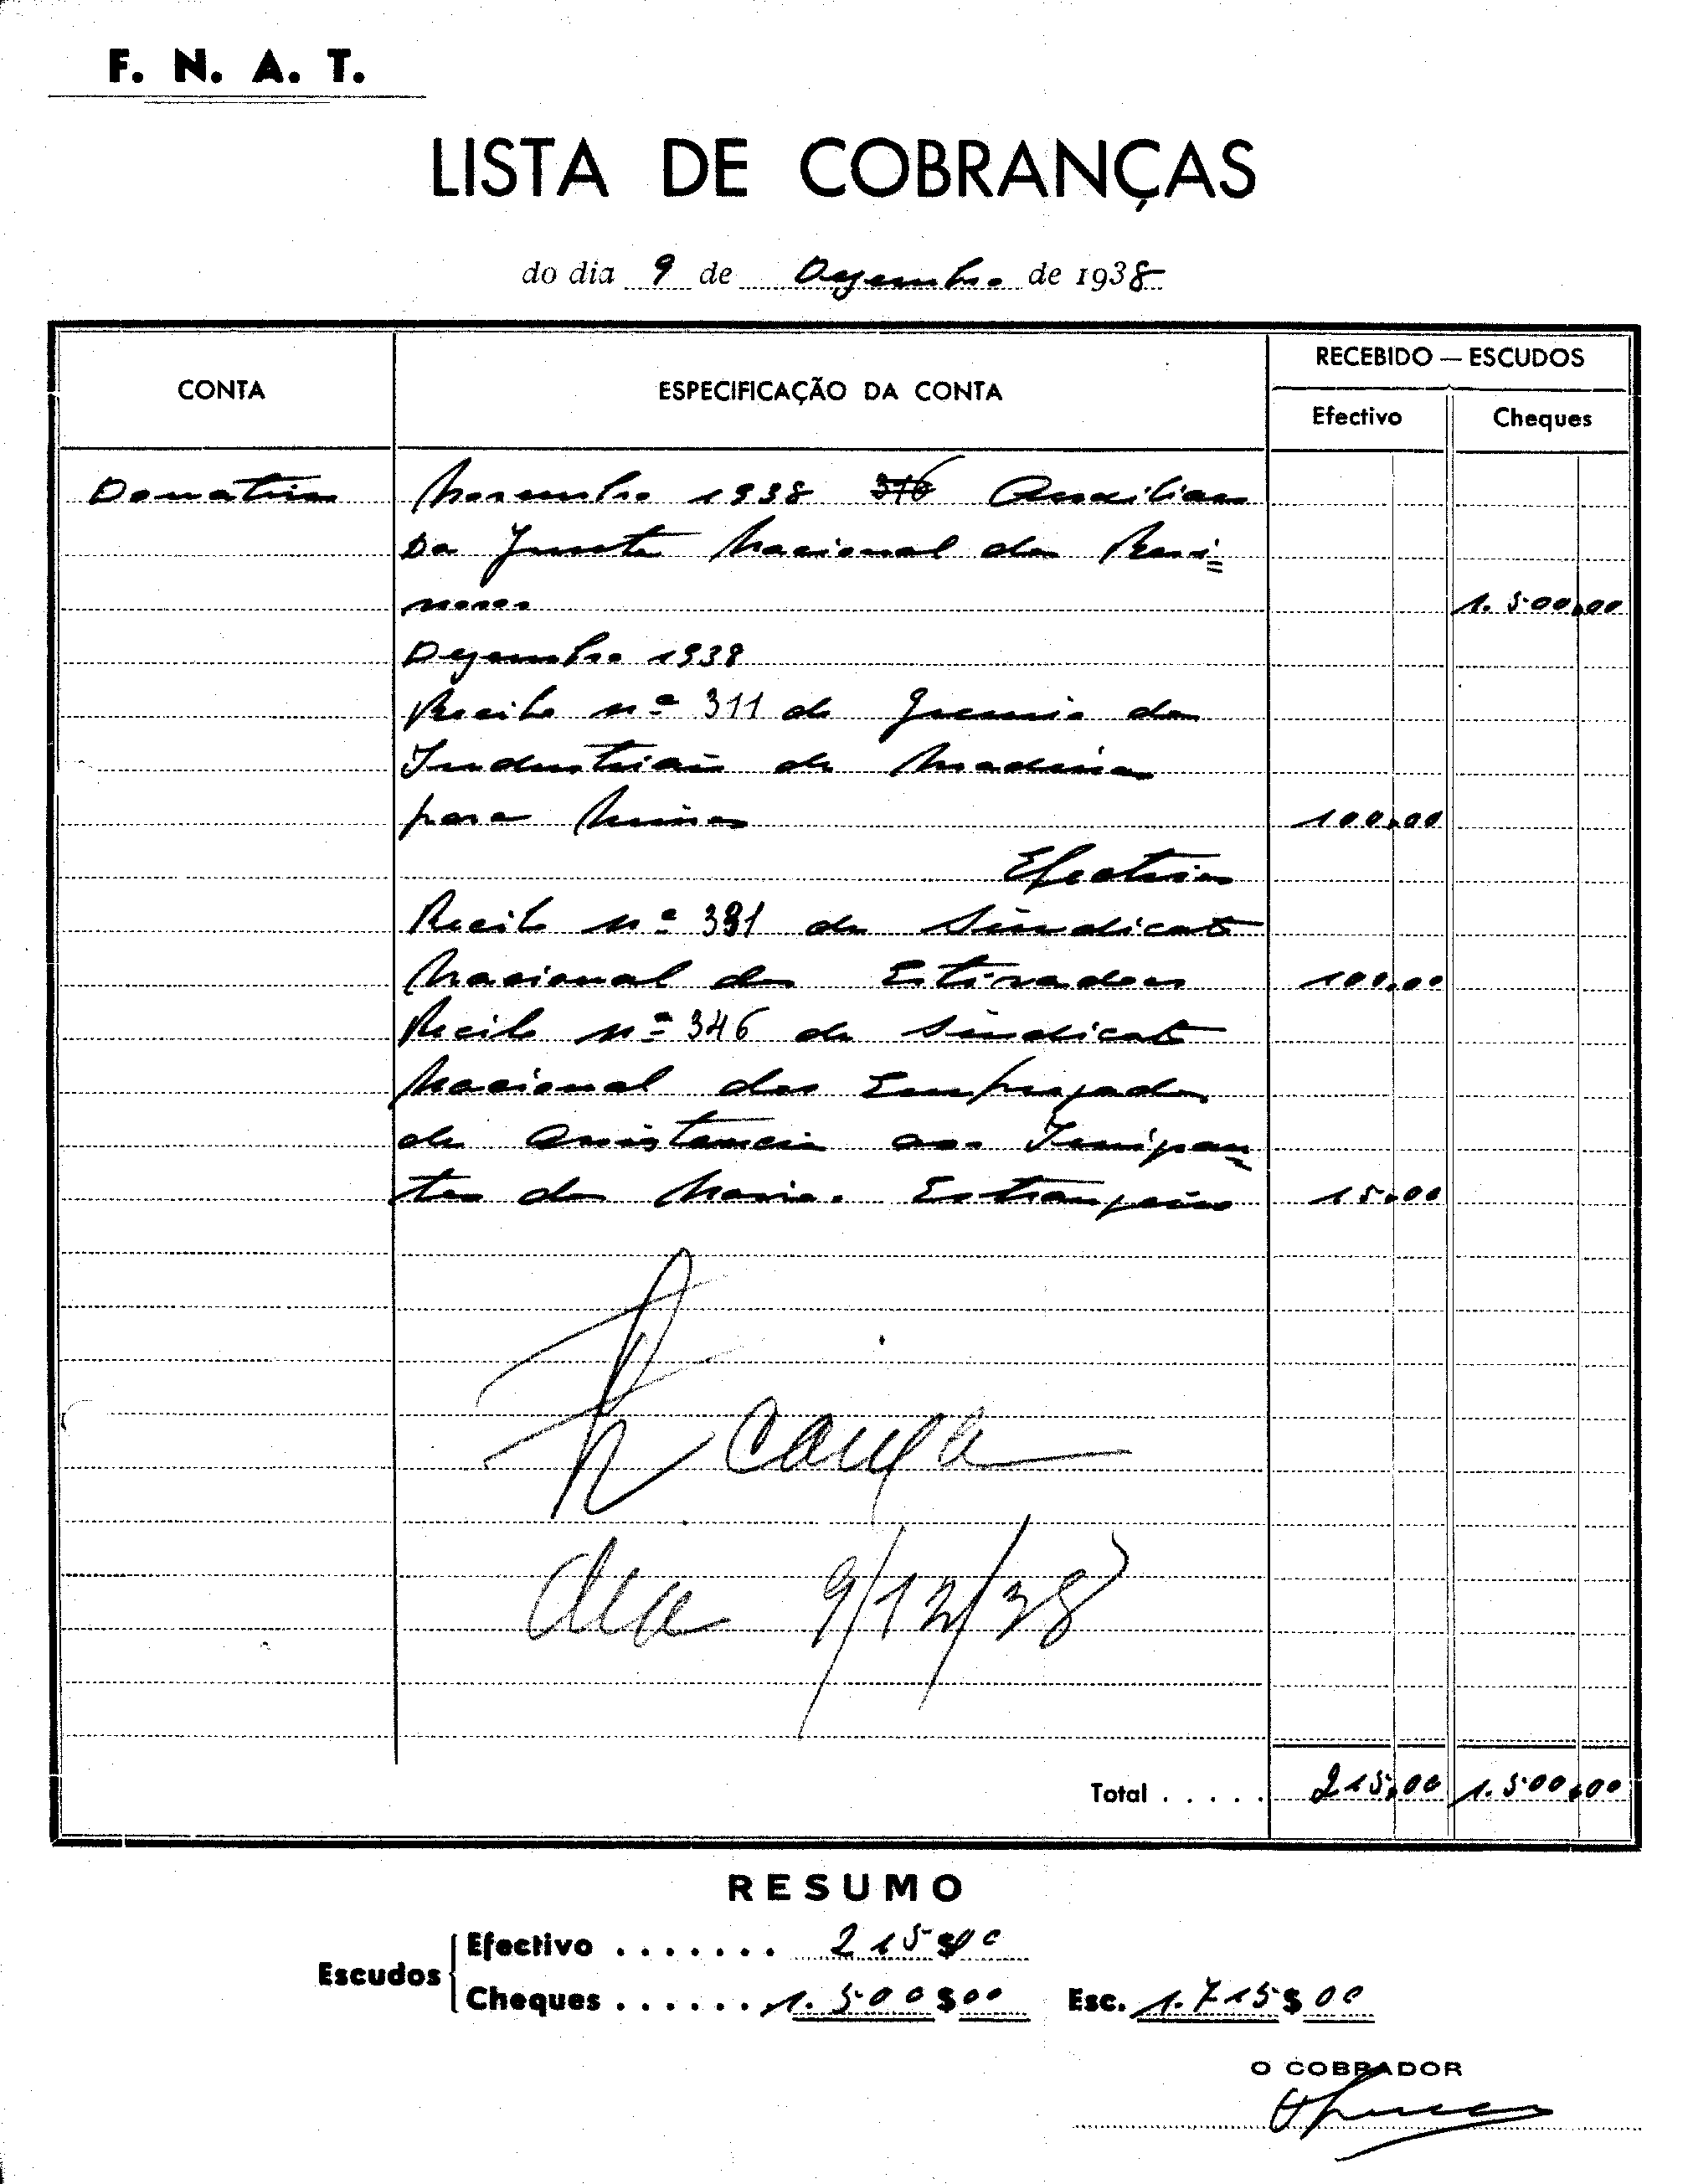 F. N. A. T.
LISTA DE COBRANÇAS
do dia 9 de Dezembro de 1938
CONTA
ESPECIFICAÇÃO DA CONTA
RECEBIDO — ESCUDOS
Efectivo
Cheques
Donativos Novembro 1938 316 Auxiliar
Da Junta Nacional dos Resi=
nosos 1.500,00
Dezembro 1938
Recibo nº 311 do Gremio dos
Industriais de Madeiras
para Minas 100,00
Efectivos
Recibo nº 391 do Sindicato
Nacional dos Estivadores 100,00
Recibo nº 346 do Sindicato
Nacional dos Empregados
de Assistencia aos Tripulan=
tes dos Navios Estrangeiros 15,00
caixa
dia 9/12/38
Total ..... 215,00 1.500,00
RESUMO
Efectivo ....... 215$00
Escudos
Cheques ...... 1.500$00 Esc. 1.715$00
O COBRADOR